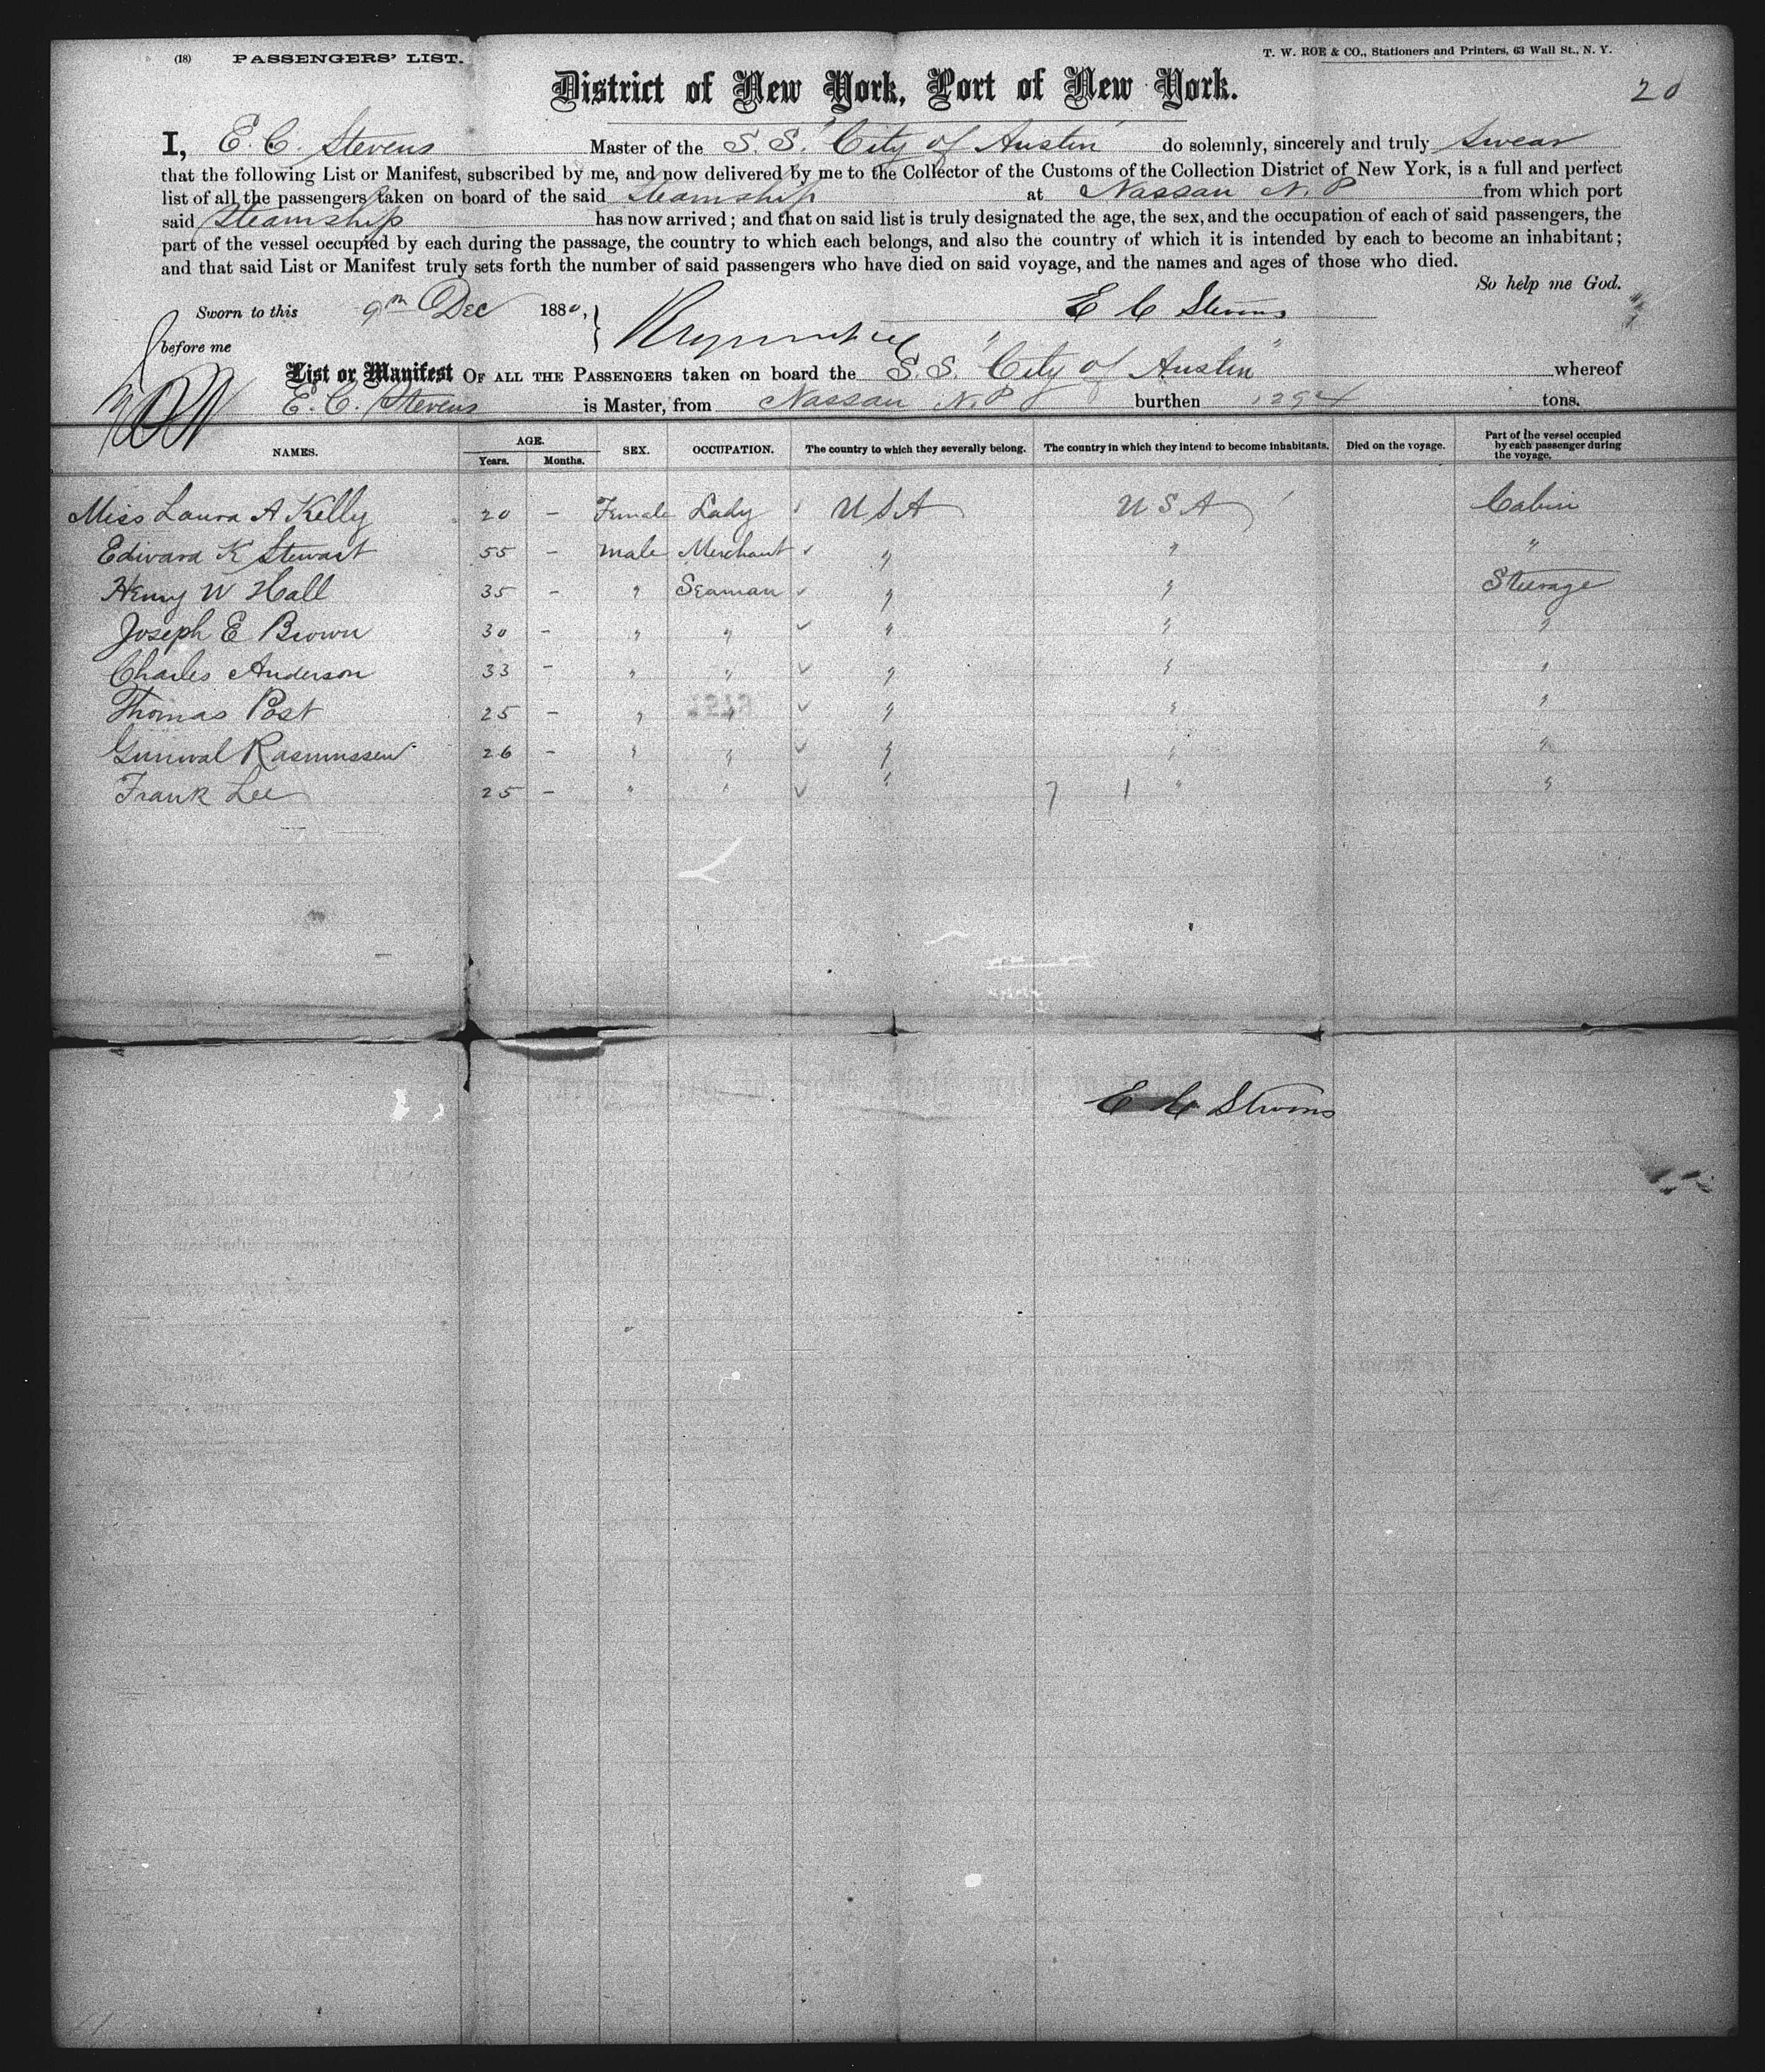 (18) PASSENGERS' LIST.
T. W. ROE & CO., Stationers and Printers, 63 Wall St., N. Y.
District of New York, Port of New York.
20
I, E. C. Stevens Master of the S. S. "City of Austin" do solemnly, sincerely and truly swear
that the following List or Manifest, subscribed by me, and now delivered by me to the Collector of the Customs of the Collection District of New York, is a full and perfect
list of all the passengers taken on board of the said Steamship at Nassau N. P from which port
said Steamship has now arrived; and that on said list is truly designated the age, the sex, and the occupation of each of said passengers, the
part of the vessel occupied by each during the passage, the country to which each belongs, and also the country of which it is intended by each to become an inhabitant;
and that said List or Manifest truly sets forth the number of said passengers who have died on said voyage, and the names and ages of those who died.
So help me God.
Sworn to this 9th Dec 1880,
E C Stevens
before me
List or Manifest OF ALL THE PASSENGERS taken on board the S. S. "City of Austin" whereof
E. C. Stevens is Master, from Nassau N. P burthen 1294 tons.
NAMES. AGE. Years. Months. SEX. OCCUPATION. The country to which they severally belong. The country in which they intend to become inhabitants. Died on the voyage. Part of the vessel occupied by each passenger during the voyage.
Miss Laura A Kelly 20 – Female Lady ✓ U S A U S A Cabin
Edward K Stewart 55 – Male Merchant ✓ " " "
Henry W Hall 35 – " Seaman ✓ " " Steerage
Joseph E Brown 30 – " " ✓ " " "
Charles Anderson 33 – " " ✓ " " "
Thomas Post 25 – " " ✓ " " "
Gunval Rasmussen 26 – " " ✓ " " "
Frank Lee 25 – " " ✓ " 7 1 " "
E C Stevens